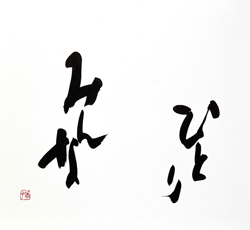 ひとり
みんな